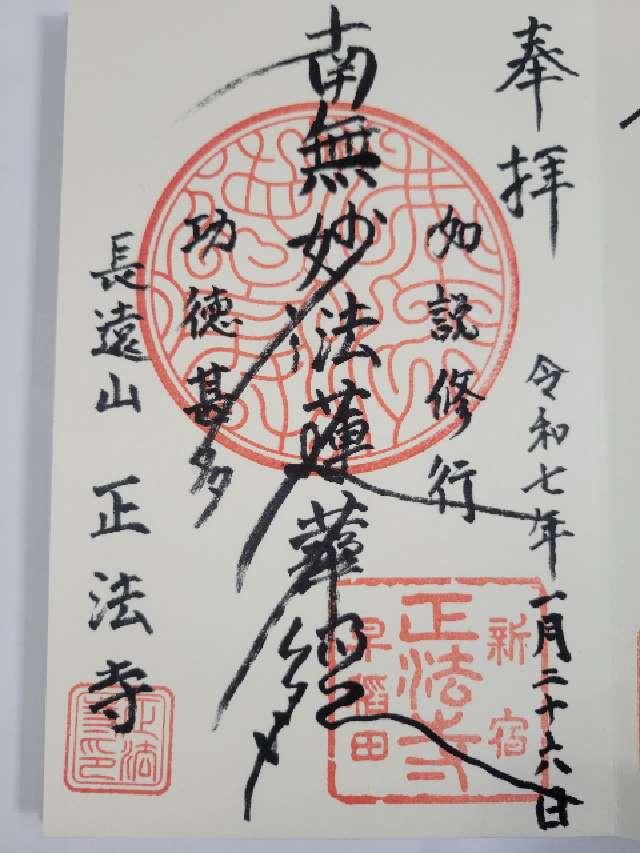 奉拝
令和七年一月二十六日
如説修行
南無妙法蓮華経
功徳甚多
長遠山 正法寺
新宿
正法寺
早稲田
正法寺印